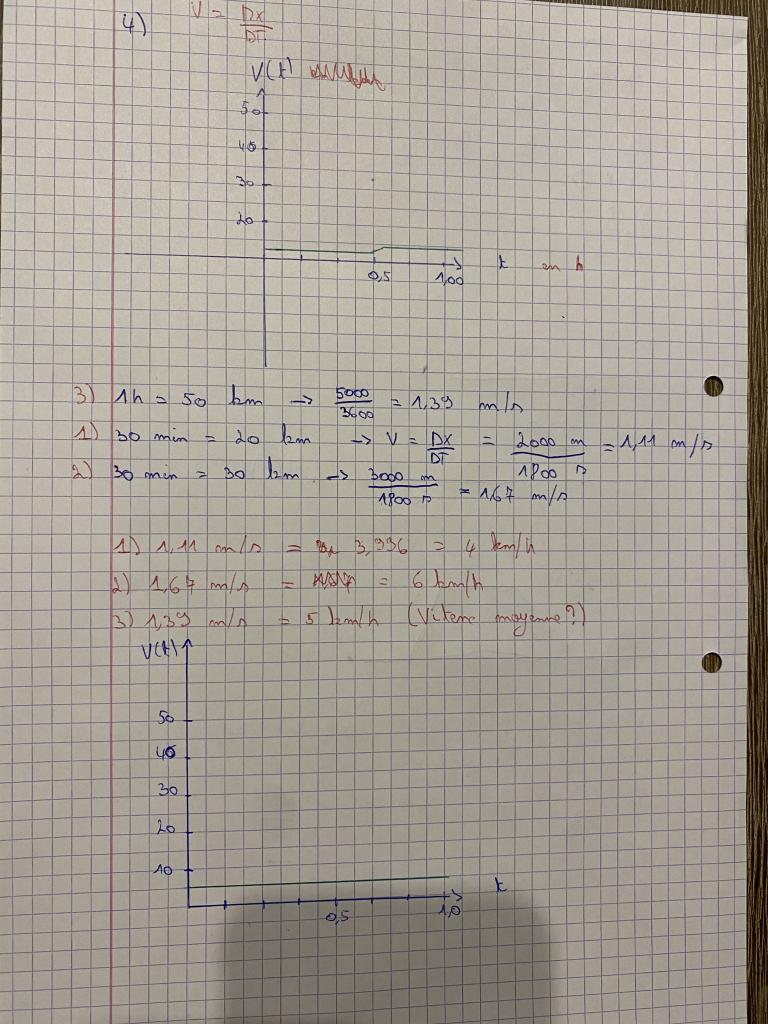 4) V = DX/DT
V(t)
50
40
30
20
0,5 1,00 t en h
3) 1h = 50 km → 5000/3600 = 1,39 m/s
1) 30 min = 20 km → V = DX/DT = 2000 m/1800 s = 1,11 m/s
2) 30 min = 30 km → 3000 m/1800 s = 1,67 m/s
1) 1,11 m/s = 3,996 = 4 km/h
2) 1,67 m/s = = 6 km/h
3) 1,39 m/s = 5 km/h (Vitesse moyenne?)
V(t)
50
40
30
20
10
0,5 1,0 t